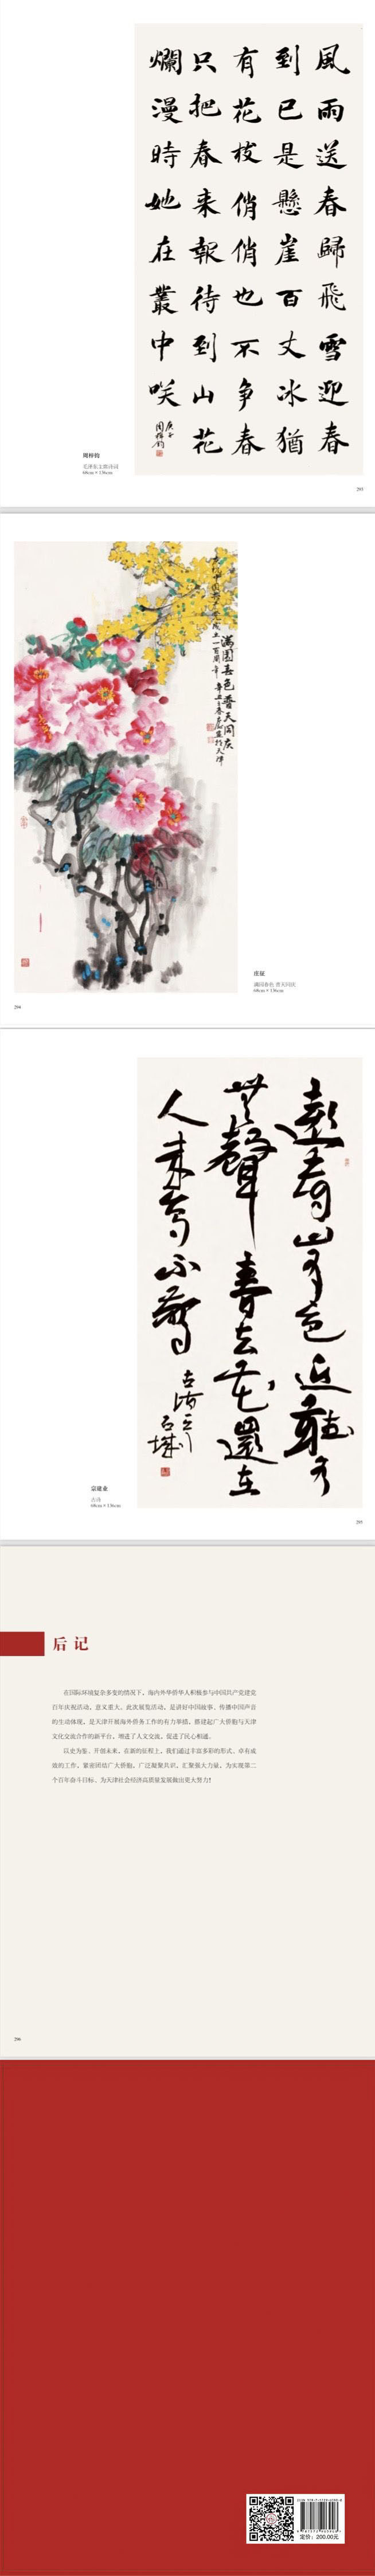 風雨送春歸飛雪迎春
到已是懸崖百丈冰猶
有花枝俏俏也不争春
只把春来報待到山花
爛漫時她在叢中咲
庚子
周梓钧
周梓钧
毛泽东主席诗词
68cm×136cm
293
满園春色普天同庆
满园春色 普天同庆
68cm×136cm
294
遠看山有色近聽水
無聲春去花還在
人来鸟不驚
宗建业
古诗
68cm×136cm
295
后记
在国际环境复杂多变的情况下，海内外华侨华人积极参与中国共产党建党
百年庆祝活动，意义重大。此次展览活动，是讲好中国故事、传播中国声音
的生动体现，是天津开展海外侨务工作的有力举措，搭建起广大侨胞与天津
文化交流合作的新平台，增进了人文交流，促进了民心相通。
以史为鉴、开创未来，在新的征程上，我们通过丰富多彩的形式、卓有成
效的工作，紧密团结广大侨胞，广泛凝聚共识，汇聚强大力量，为实现第二
个百年奋斗目标、为天津社会经济高质量发展做出更大努力！
296
定价：200.00元